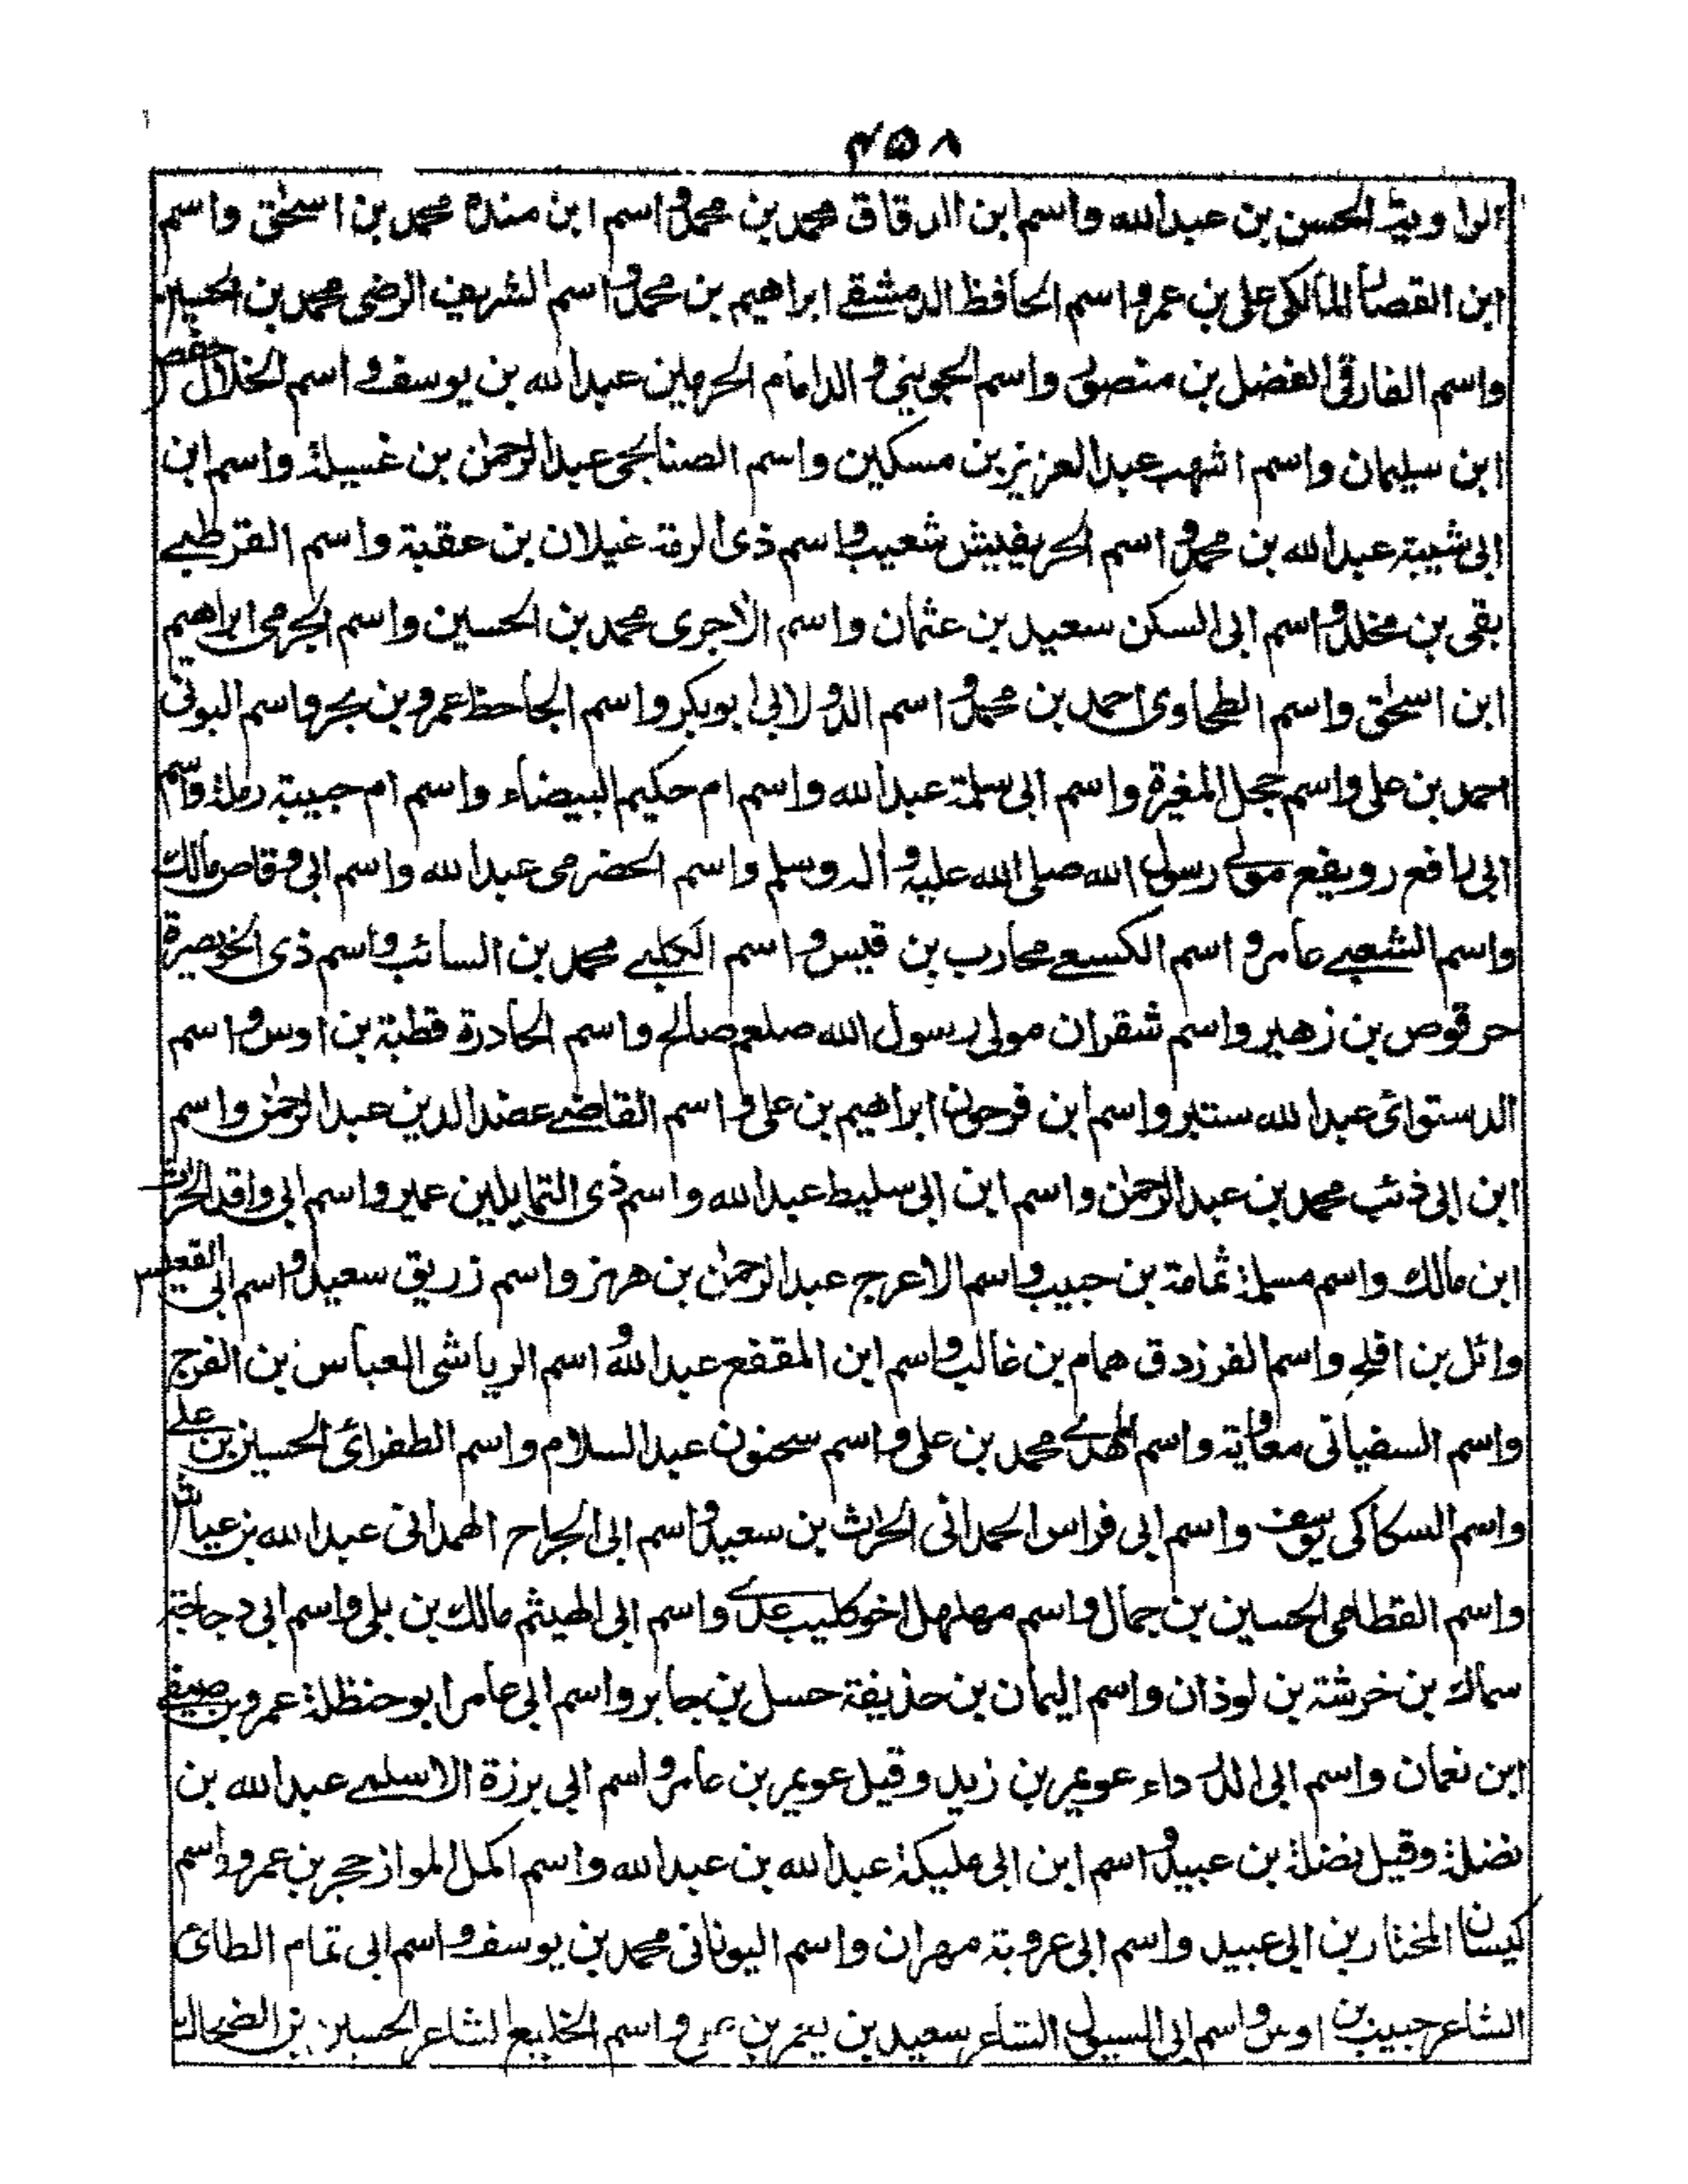 ٤٥٨
الراويد الحسن بن عبدالله واسم ابن الدقاق محمد بن محمد واسم ابن منده محمد بن اسحٰق واسم
ابن القصار المالكى على بن عمرو اسم الحافظ الدمشقے ابراهيم بن محمد واسم الشريف الرضى محمد بن الحسين
واسم الفارقى الفضل بن منصور واسم الجوينى والد امام الحرمين عبدالله بن يوسف واسم الخلال حفص
ابن سليمان واسم اشهب عبدالعزيز بن مسكين واسم الصنابحى عبدالرحمٰن بن غسيلة واسم ابن
ابى شيبة عبدالله بن محمد واسم الحريفيش شعيب واسم ذى الرمة غيلان بن عقبة واسم القرطبے
بقى بن مخلد واسم ابى السكن سعيد بن عثمان واسم الاجرى محمد بن الحسين واسم الجرمى ابراهيم
ابن اسحٰق واسم الطحاوى احمد بن محمد واسم الدولابى ابوبكر واسم الجاحظ عمرو بن بحر واسم البونى
احمد بن على واسم جحل المغيرة واسم ابى سلمة عبدالله واسم ام حكيم البيضاء واسم ام حبيبة رملة واسم
ابى رافع رويفع مولے رسول الله صلى الله عليه واله وسلم واسم الحضرمى عبدالله واسم ابى وقاص مالك
واسم الشعبے عامر واسم الكسعے محارب بن قيس واسم الكلبے محمد بن السائب واسم ذى الخويصرة
حرقوص بن زهير واسم شقران مولى رسول الله صلعم صالح واسم الحادرة قطبة بن اوس واسم
الدستوائى عبدالله ستبر واسم ابن فرحون ابراهيم بن على واسم القاضے عضد الدين عبدالرحمٰن واسم
ابن ابى ذئب محمد بن عبدالرحمٰن واسم ابن ابى سليط عبدالله واسم ذى الشمالين عمير واسم ابى واقد الحرث
ابن مالك واسم مسلمة ثمامة بن حبيب واسم الاعرج عبدالرحمٰن بن هرمز واسم زريق سعيد واسم ابى القعيس
وائل بن افلح واسم الفرزدق همام بن غالب واسم ابن المقفع عبدالله واسم الرياشى العباس بن الفرج
واسم السفيانى معاوية واسم المهدے محمد بن على واسم سحنون عبدالسلام واسم الطغرائى الحسين بن علے
واسم السكاكى يوسف واسم ابى فراس الحمدانى الحرث بن سعيد واسم ابى الجراح الهمدانى عبدالله بن عياش
واسم القطامى الحسين بن جمال واسم مهلهل اخو كليب عدے واسم ابى الهيثم مالك بن بلى واسم ابى دجاجة
سماك بن خرشة بن لوذان واسم اليمان بن حذيفة حسل بن جابر واسم ابى عامر ابو حنظلة عمرو بن صيفے
ابن نعمان واسم ابى الدرداء عويمر بن زيد وقيل عويمر بن عامر واسم ابى برزة الاسلمے عبدالله بن
نضلة وقيل نضلة بن عبيد واسم ابن ابى مليكة عبدالله بن عبدالله واسم اكل المواز حجر بن عمرو واسم
كيسان المختار بن ابى عبيد واسم ابى عروبة مهران واسم اليونانى محمد بن يوسف واسم ابى تمام الطائى
الشاعر حبيب بن اوس واسم ابى الشاعر سعيد بن واسم الخليع الشاعر الحسين بن الضحاك